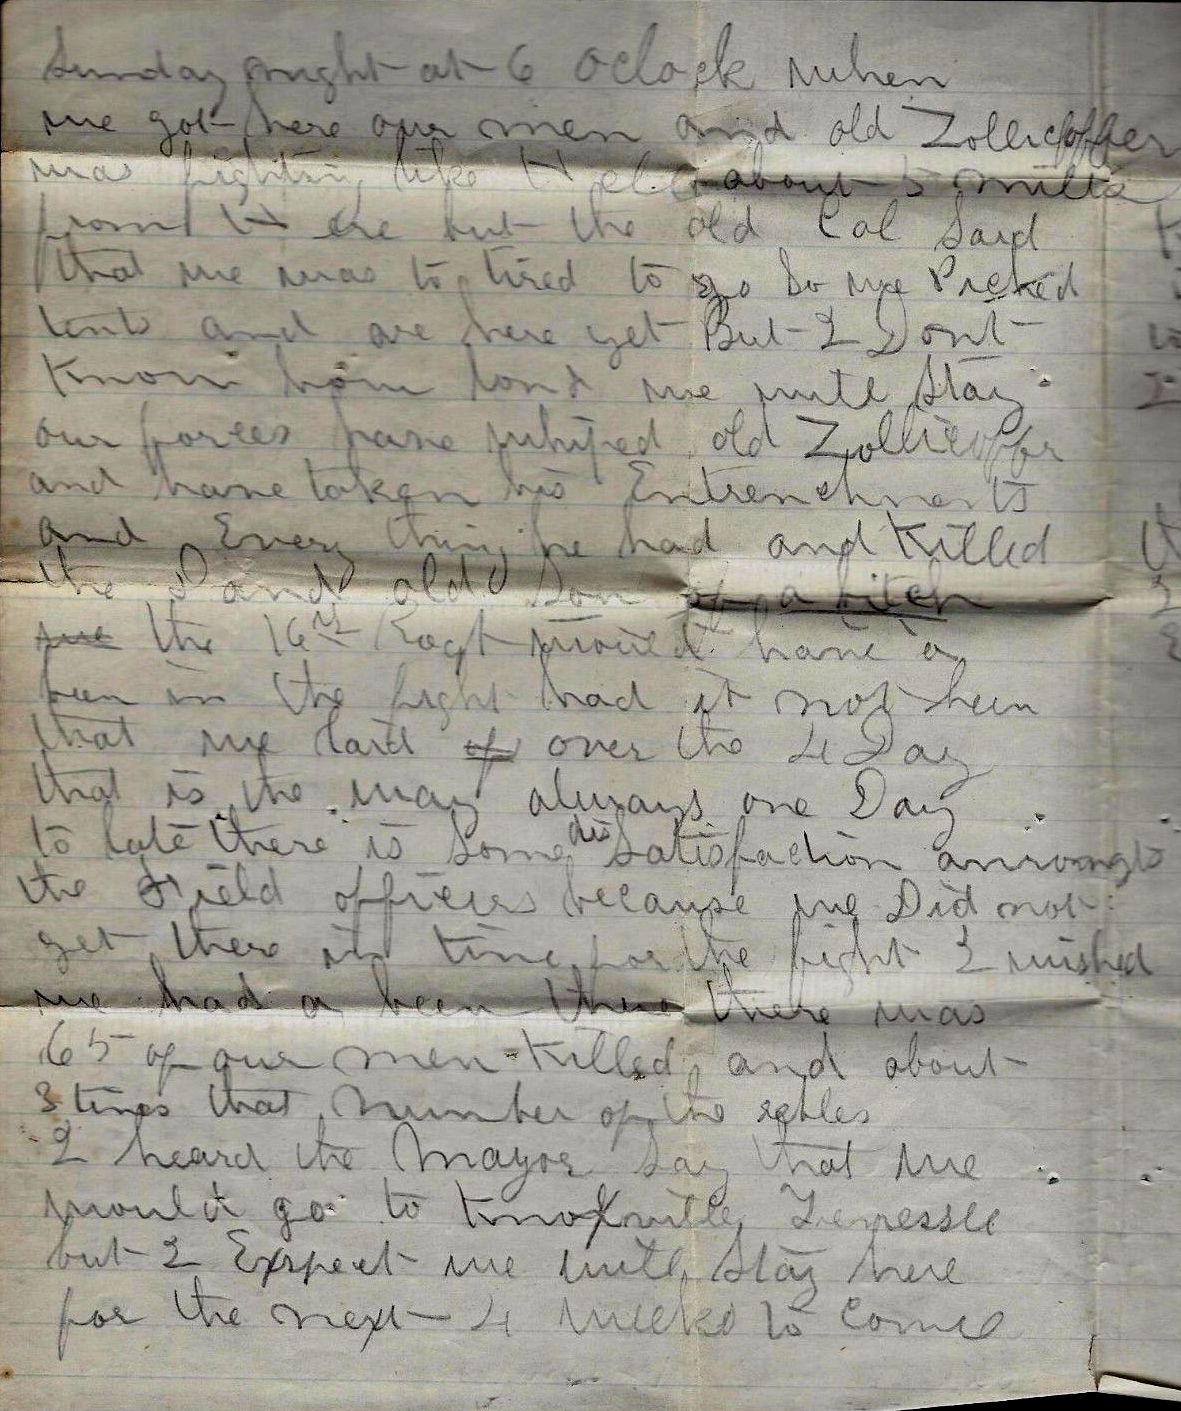 Sunday night at 6 oclock when
we got here our men and old Zollicoffer
was fighting like H ell about 5 mills
from H ere but the old Col Said
that we was to tired to go So we Picked
tents and are here yet But I Dont
Know how long we will Stay
our forces have whiped old Zollicoffer
and have taken his Entrenchments
and Every thing he had and Killed
the Damd old Son of a bitch
we the 16th Regt would have a
been in the fight had it not been
that we laid up over the 4 Day
that is the way always one Day
to late there is Some dis Satisfaction amongts
the Field officers because we Did not
get there in time for the fight I wished
we had a been there there was
65 of our men Killed and about
3 times that Number of the rebles
I heard the Mayor Say that we
would go to Knoxville Tenessee
but I Exspect we will Stay here
for the next 4 weeks to come